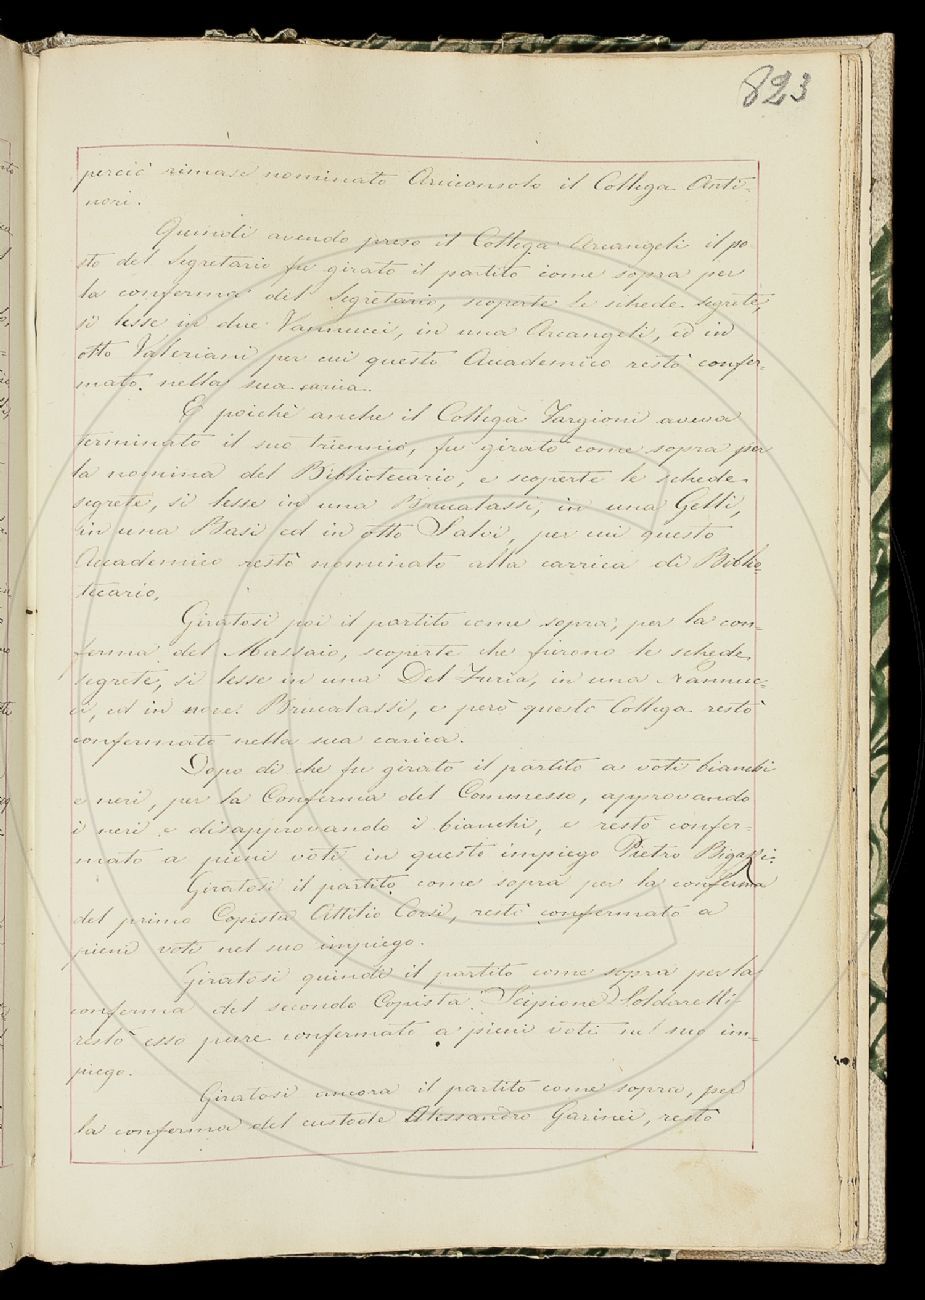 823
perciò rimase nominato Arciconsolo il Collega Anti-
nori.
Quindi avendo preso il Collega Arcangeli il po-
sto del Segretario fu girato il partito come sopra per
la conferma del Segretario, scoperte le schede segrete,
si lesse in due Vannucci, in una Arcangeli, ed in
otto Valeriani per cui questo Accademico restò confer-
mato nella sua carica.
E poichè anche il Collega Targioni aveva
terminato il suo triennio, fu girato come sopra per
la nomina del Bibliotecario, e scoperte le schede
segrete, si lesse in una Brucalassi, in una Gelli,
in una Basi ed in otto Salvi, per cui questo
Accademico restò nominato alla carrica di Biblio-
tecario.
Giratosi poi il partito come sopra, per la con-
ferma del Massaio, scoperte che furono le schede
segrete, si lesse in una Del Furia, in una Nannuc-
ci, ed in nove Brucalassi, e però questo Collega restò
confermato nella sua carica.
Dopo di che fu girato il partito a voti bianchi
e neri, per la Conferma del Commesso, approvando
i neri e disapprovando i bianchi, e restò confer-
mato a pieni voti in questo impiego Pietro Bigazzi.
Giratosi il partito come sopra per la conferma
del primo Copista Attilio Corsi, restò confermato a
pieni voti nel suo impiego.
Giratosi quindi il partito come sopra per la
conferma del secondo Copista Scipione Soldarelli
restò esso pure confermato a pieni voti nel suo im-
piego.
Giratosi ancora il partito come sopra, per
la conferma del custode Alessandro Garinei, restò